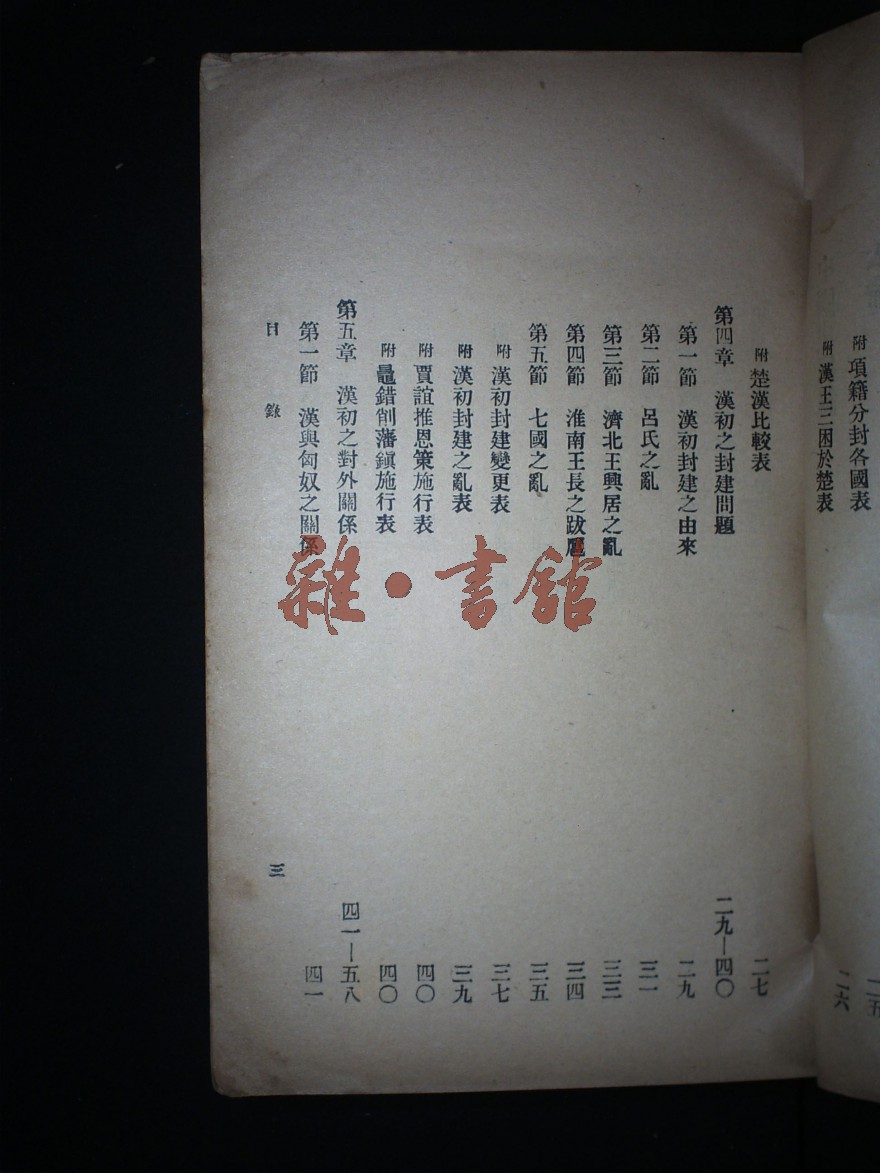 附 項籍分封各國表 二五
附 漢王三困於楚表 二六
附 楚漢比較表 二七
第四章 漢初之封建問題 二九—四〇
第一節 漢初封建之由來 二九
第二節 呂氏之亂 三一
第三節 濟北王興居之亂 三三
第四節 淮南王長之跋扈 三四
第五節 七國之亂 三五
附 漢初封建變更表 三七
附 漢初封建之亂表 三九
附 賈誼推恩策施行表 四〇
附 鼂錯削藩鎮施行表 四〇
第五章 漢初之對外關係 四一—五八
第一節 漢與匈奴之關係 四一
目錄 三
雜•書館